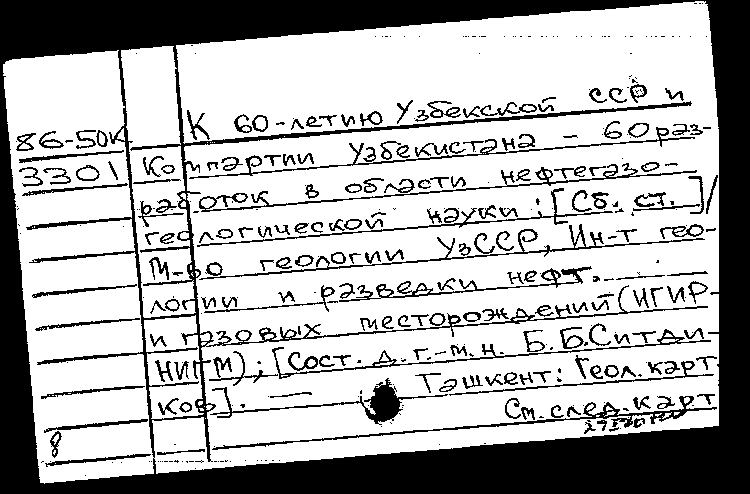 К 60-летию Узбекской ССР и
86-50К
3301
Компартии Узбекистана - 60 раз-
работок в области нефтегазо-
геологической науки : [Сб. ст.]/
М-во геологии УзССР, Ин-т гео-
логии и разведки нефт.
и газовых месторождений (ИГИР-
НИГМ) ; [Сост. д. г.-м. н. Б. Б. Ситди-
ков]. — Ташкент : Геол. карт
См. след. карт
8